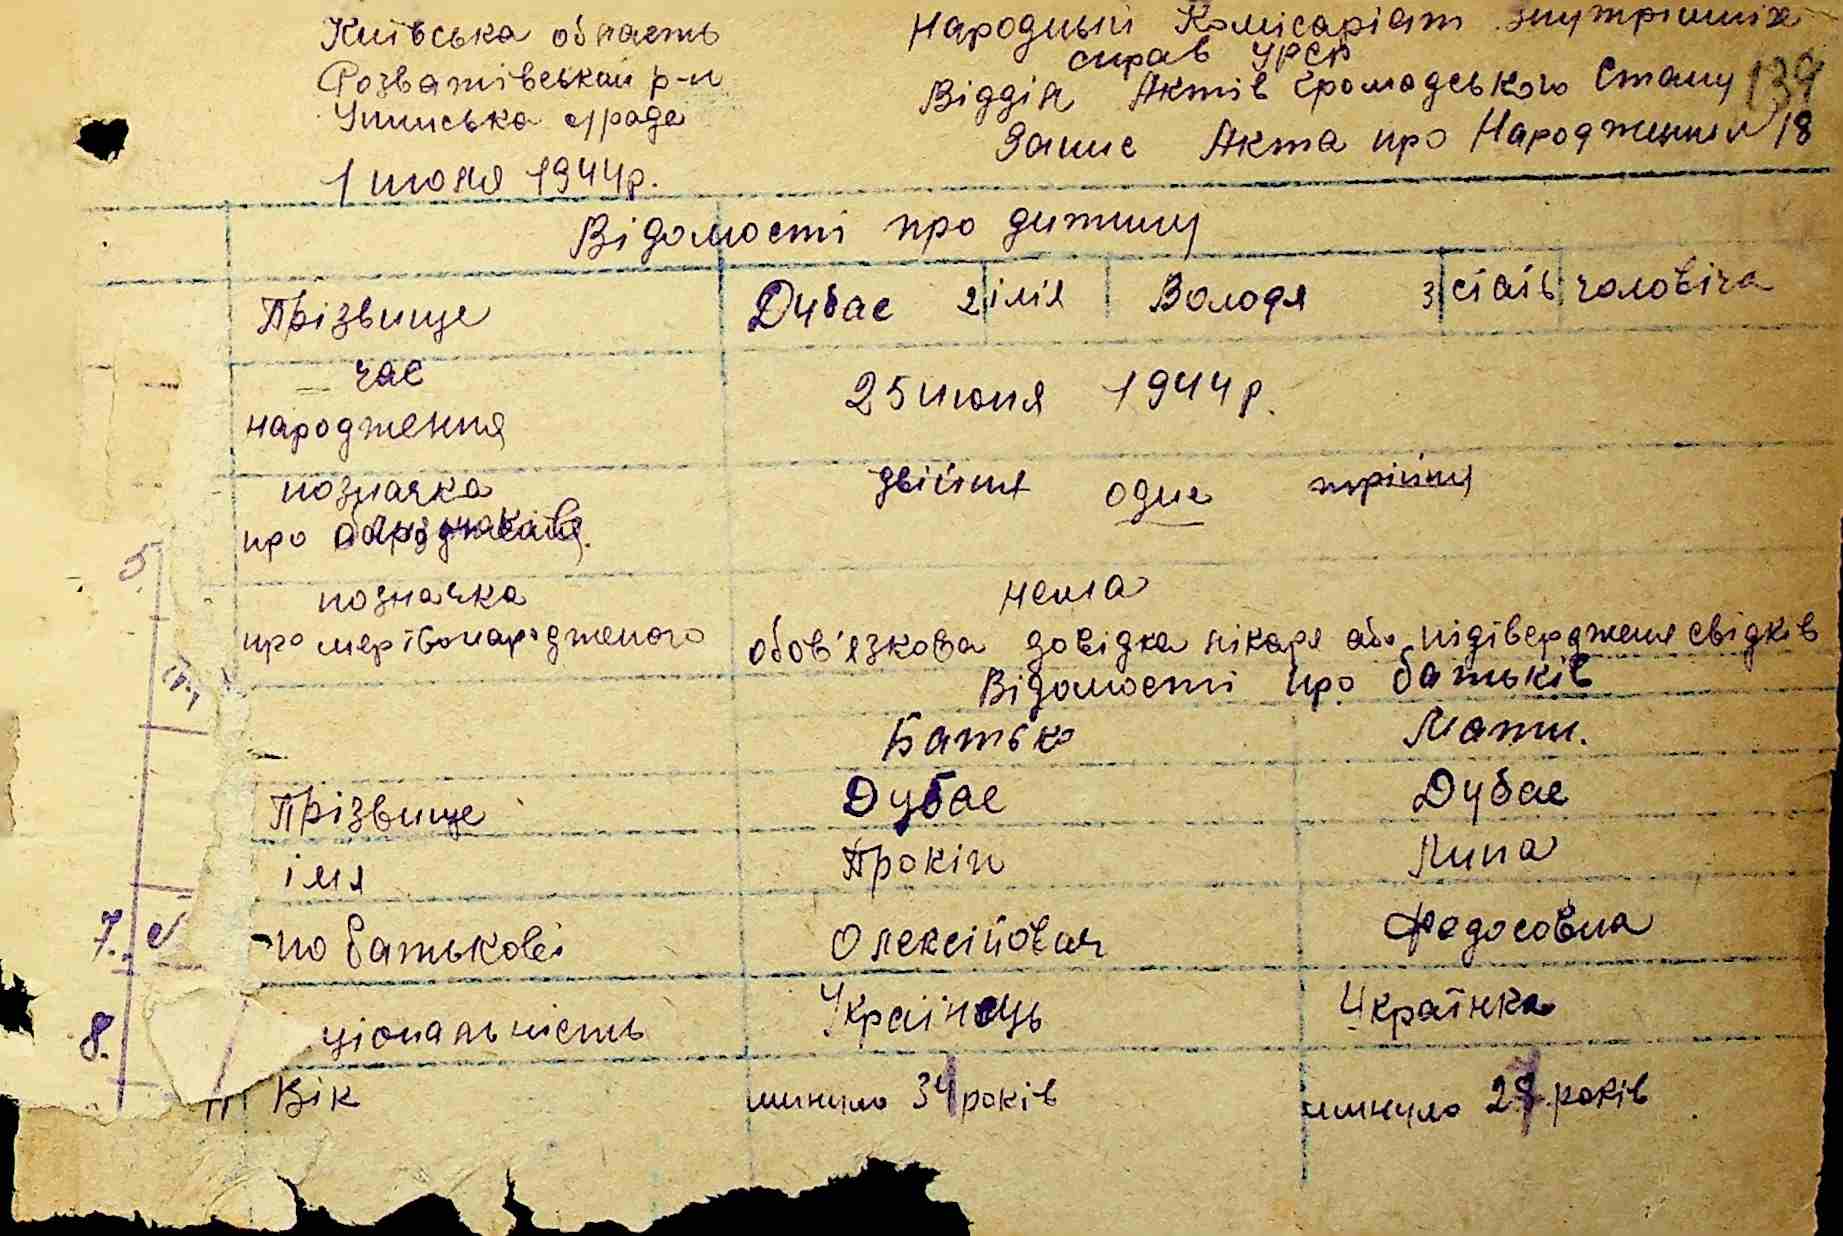 Київська область
Розватівський р-н
сррада
1 июня 1944р.
Народный Комісаріят Внутрішніх
справ УРСР
Відділ Актів Громадського Стану 139
Запис Акта про Народження N 18
Відомості про дитину
Прізвище Дубає 2 імія Володя 3 стать чоловіча
час
народження 25 июня 1944 р.
позначка
про двійня одне трійня
5
позначка нема
про мертвонародженого обов'язкова довідка лікаря або підівердження свідків
Відомості про батьків
Батько Мати.
Прізвище Дубає Дубає
імя Прокіп Лина
7. по батькові Олексійович Федосовна
8. ціональність Українець Українка
Вік минуло 34 років минуло 27 років